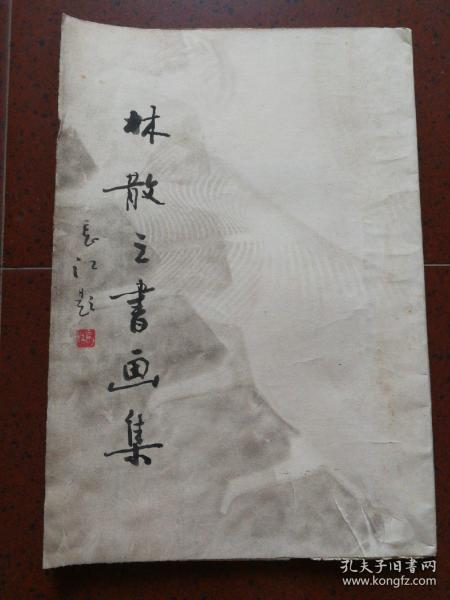 林散之書画集
長江題
孔夫子旧書网
www.kongfz.com